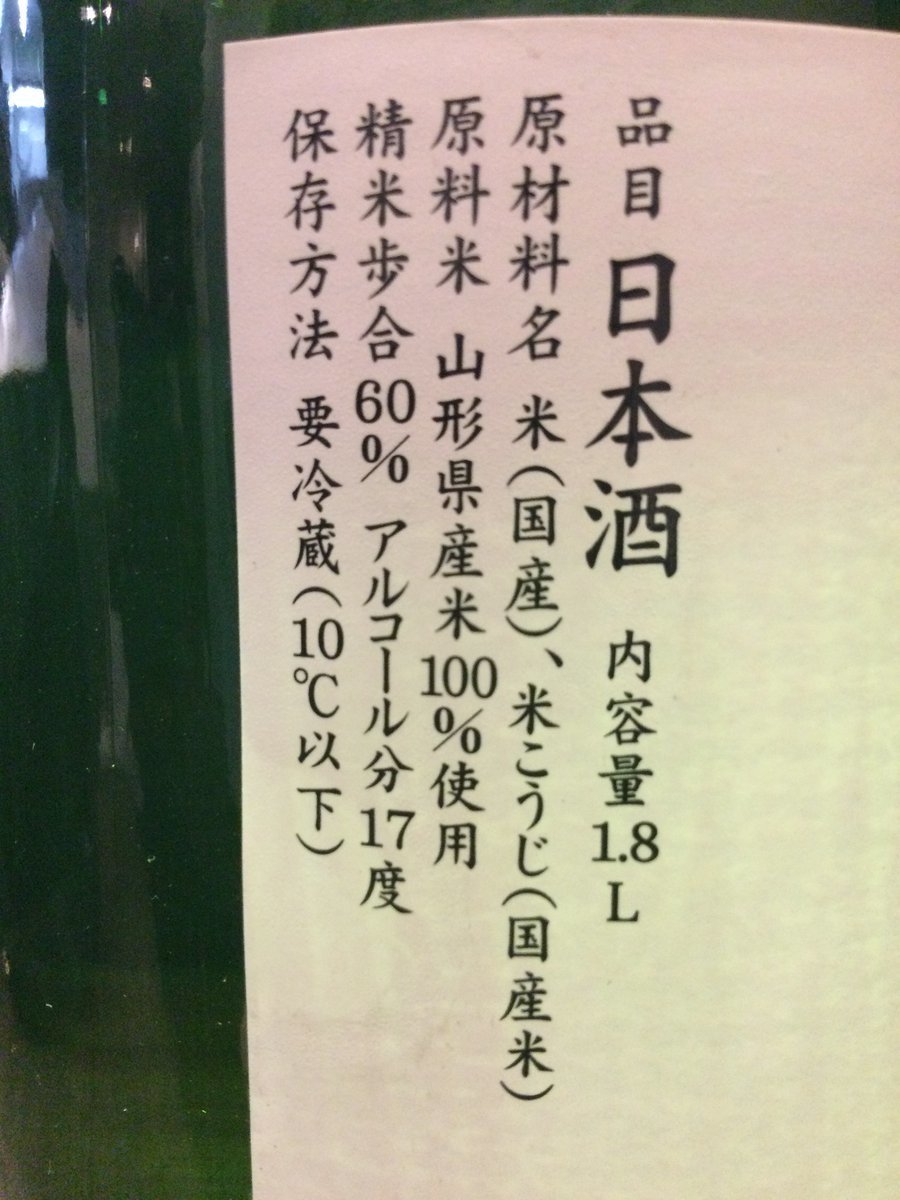 品目 日本酒 内容量1.8L
原材料名 米(国産)、米こうじ(国産米)
原料米 山形県産米100%使用
精米歩合60% アルコール分17度
保存方法 要冷蔵(10℃以下)